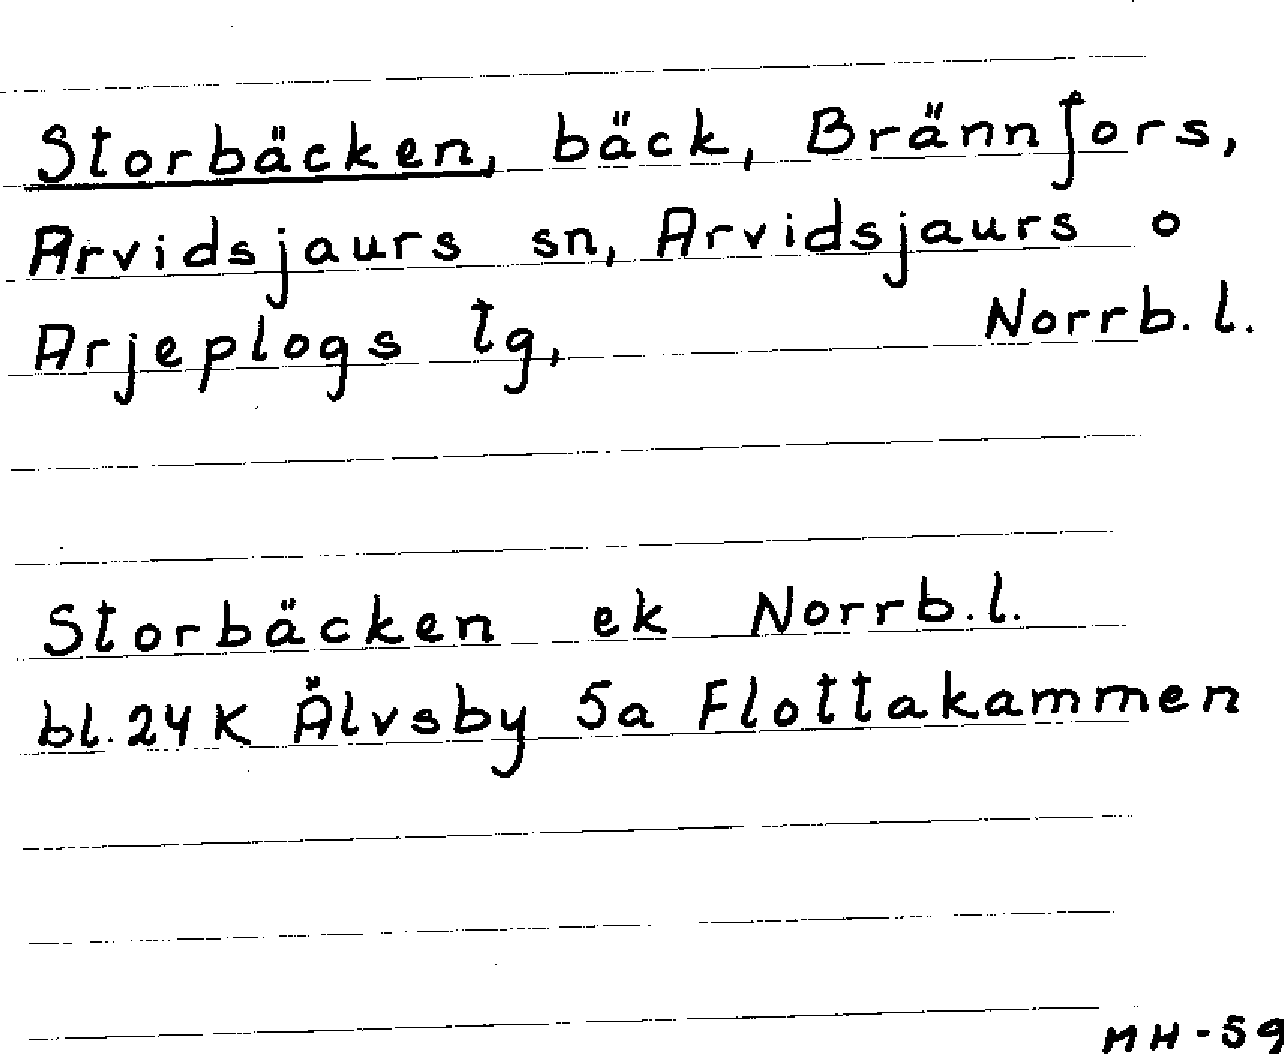 Storbäcken, bäck, Brännfors,
Arvidsjaurs sn, Arvidsjaurs o
Arjeplogs tg, Norrb. l.
Storbäcken ek Norrb. l.
bl. 24K Älvsby 5a Flottakammen
MH-59